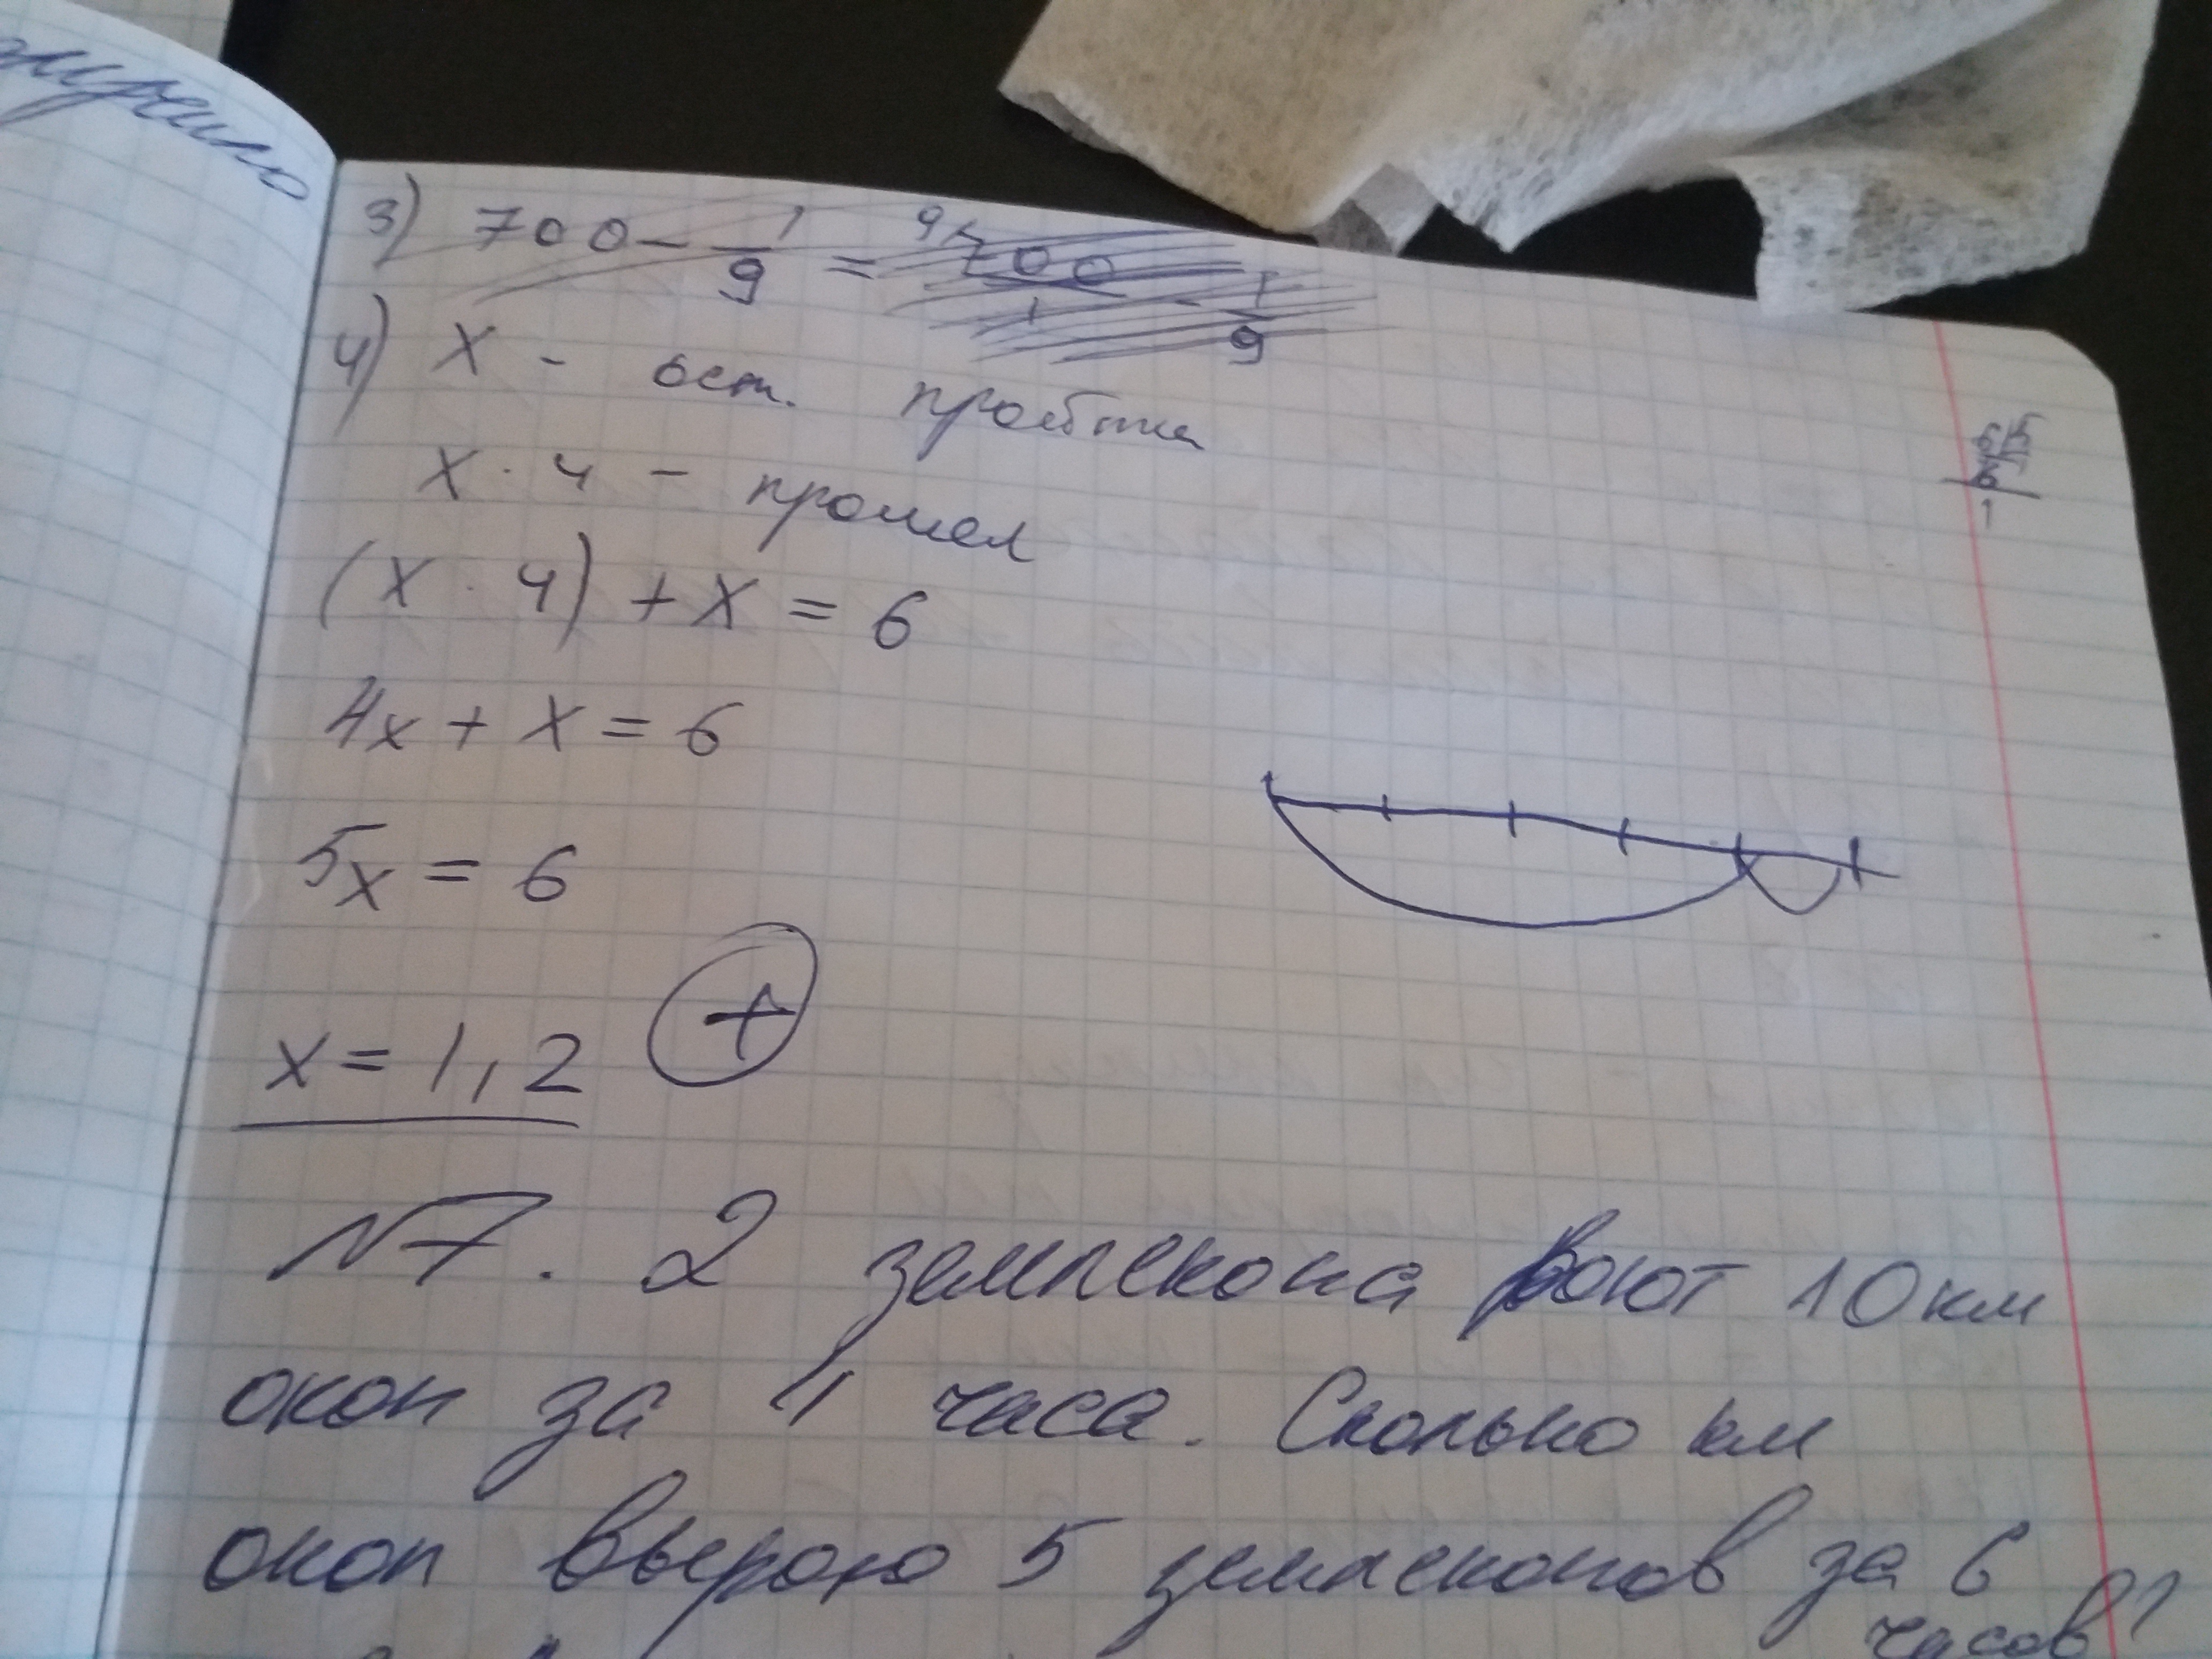 3) 700 - 1/9 = 9\ 700/1 - 1/9
4) X - ост. пройти
X · 4 - прошел
(X · 4) + X = 6
4x + X = 6
5x = 6
x = 1,2 +
№7. 2 землекопа роют 10 км
окоп за 4 часа. Сколько км
окоп выроют 5 землекопов за 6
часов?